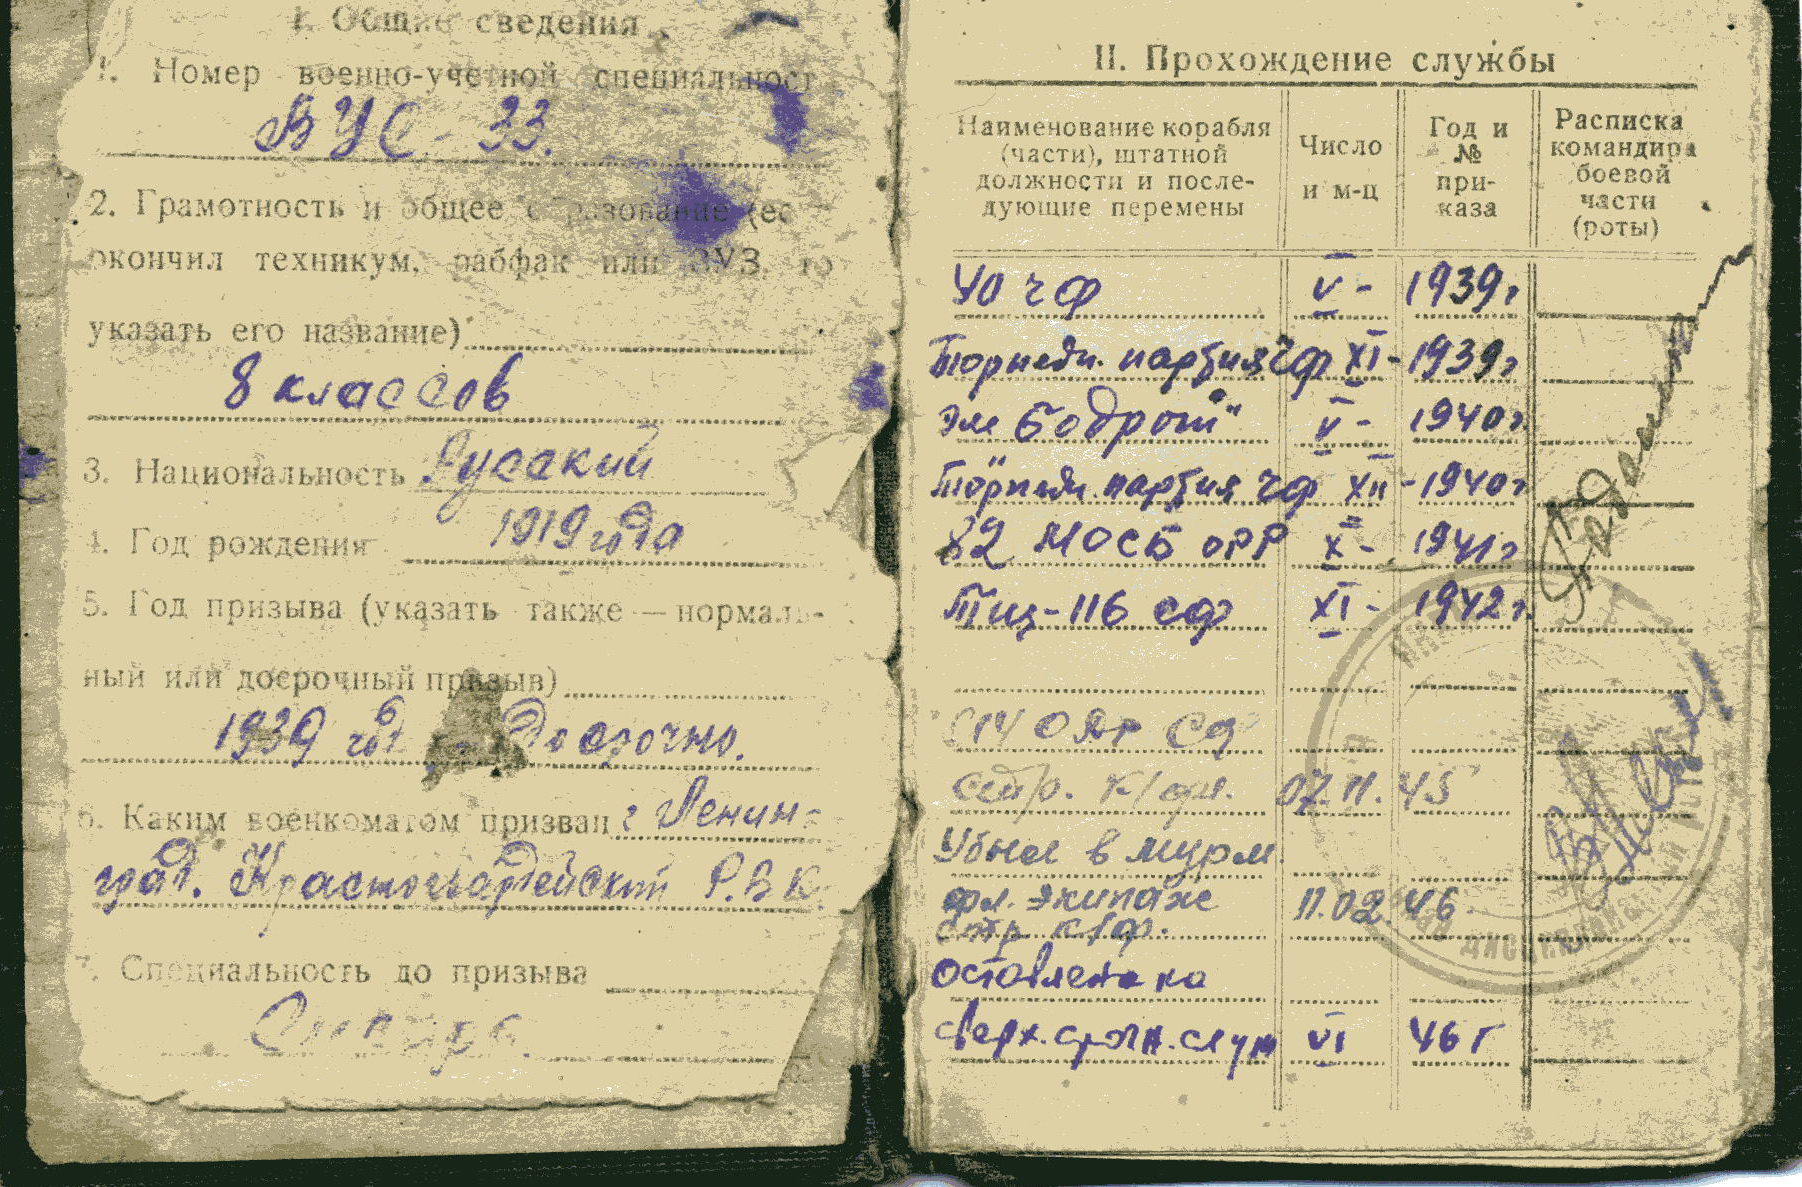 I. Общие сведения
1. Номер военно-учетной специальност
ВУС - 33.
2. Грамотность и общее образование (ес
окончил техникум, рабфак или ВУЗ, то
указать его название)
8 классов
3. Национальность Русский
4. Год рождения 1919 года
5. Год призыва (указать также — нормаль-
ный или досрочный призыв)
1939 год Досрочно.
6. Каким военкоматом призван г Ленин-
град. Красногвардейский Р.В.К.
7. Специальность до призыва
II. Прохождение службы
Наименование корабля (части), штатной должности и после- дующие перемены
Число и м-ц
Год и № при- каза
Расписка командира боевой части (роты)
УО ЧФ V - 1939г
Торпедн. партия ЧФ XI - 1939г
эм "Бодрый" V - 1940г.
Торпедн. партия ЧФ XII - 1940г
82 МОСБ ОРР X - 1941г
Тщ-116 СФ XI - 1942г.
СФ
07.11.45
Убыл в мурм.
фл. экипаж 11.02.46
стр
Оставлен на
сверх.срочн.служ VI 46 г